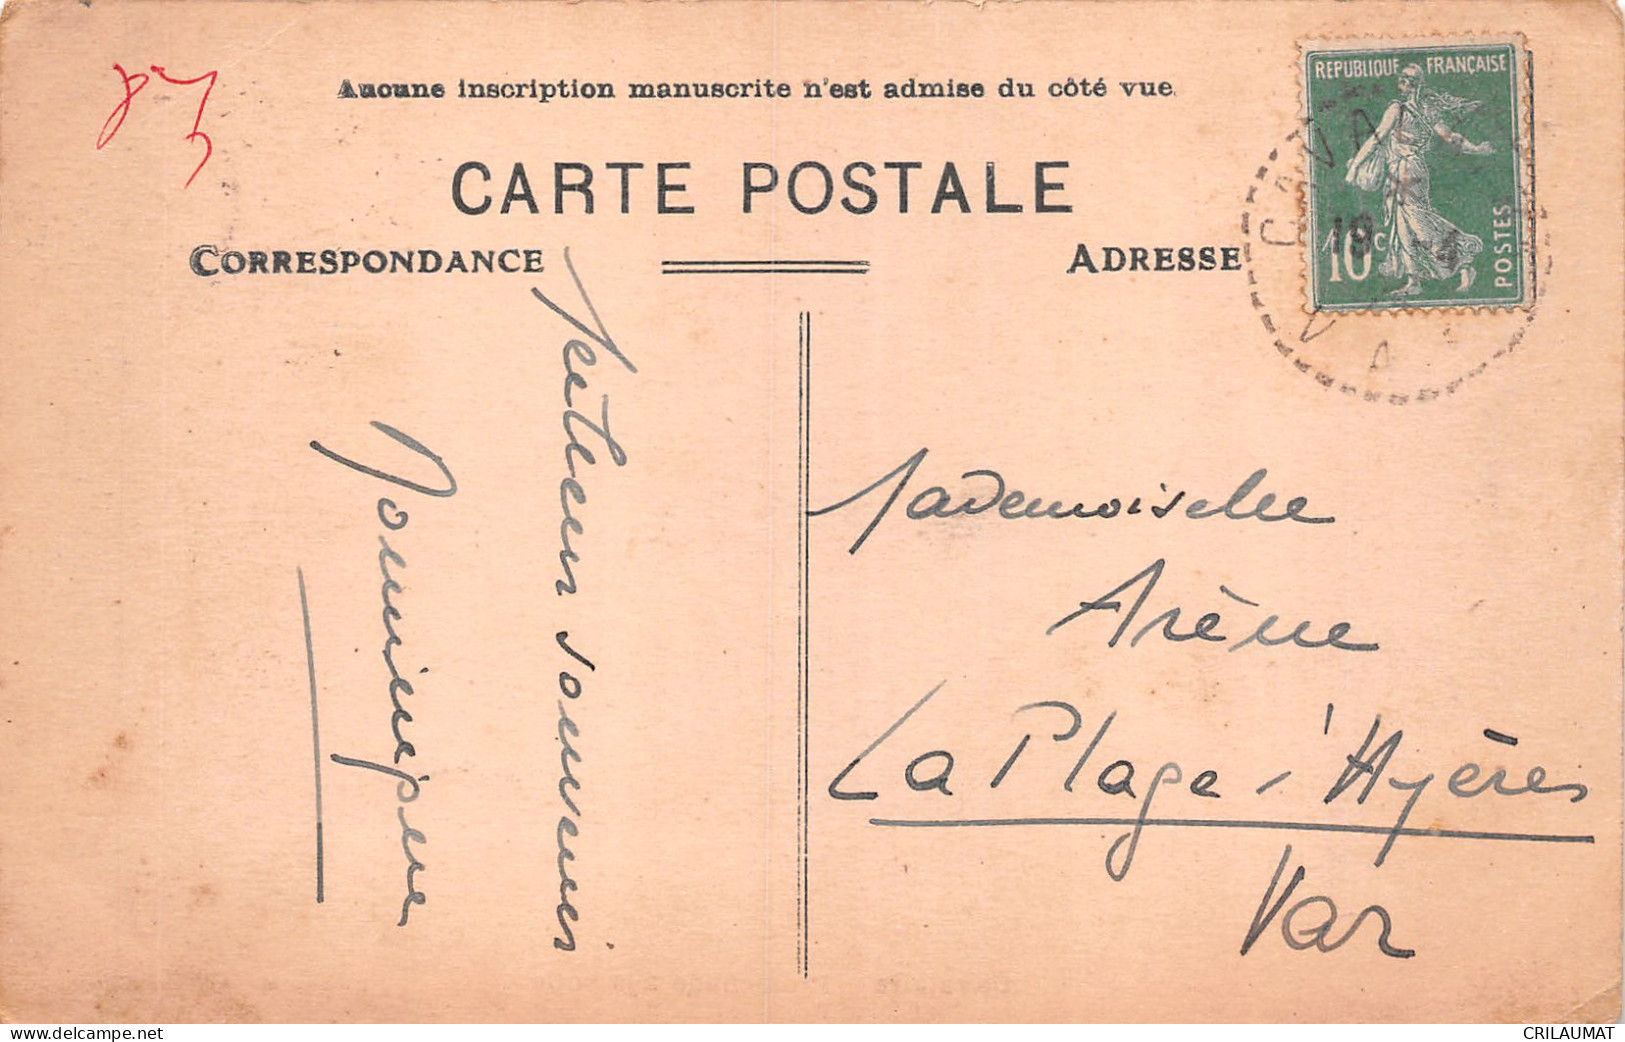 83
Aucune inscription manuscrite n'est admise du côté vue.
CARTE POSTALE
CORRESPONDANCE
ADRESSE
REPUBLIQUE FRANÇAISE
10c
POSTES
CAVAL
19
VAR
Meilleur souvenir
Dominique
Mademoiselle
Arène
La Plage d'Hyères
Var
CRILAUMAT